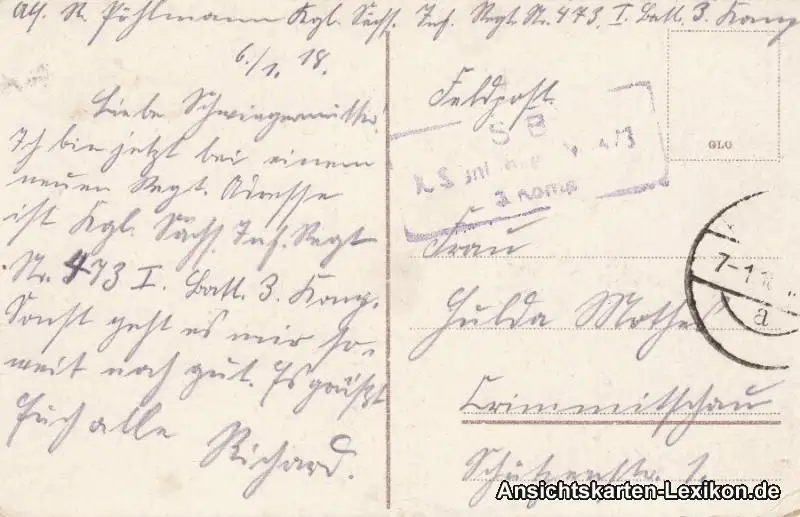 Abs. R. Pöhlmann Kgl. Sächs. Inf. Regt. Nr. 473, I. Batl. 3. Komp.
6./1. 18.
Liebe Schwiegermutter!
Ich bin jetzt bei einem
neuen Regt. Adresse
ist Kgl. Sächs. Inf. Regt
Nr. 473 I. Batl. 3. Komp.
Sonst geht es mir so-
weit noch gut. Es grüßt
Euch alle
Richard.
Feldpost.
S B
473
3 Komp
GLO
Frau
Hulda Mothes
Crimmitschau
Schützenstr. 1.
7-1
a
Ansichtskarten-Lexikon.de